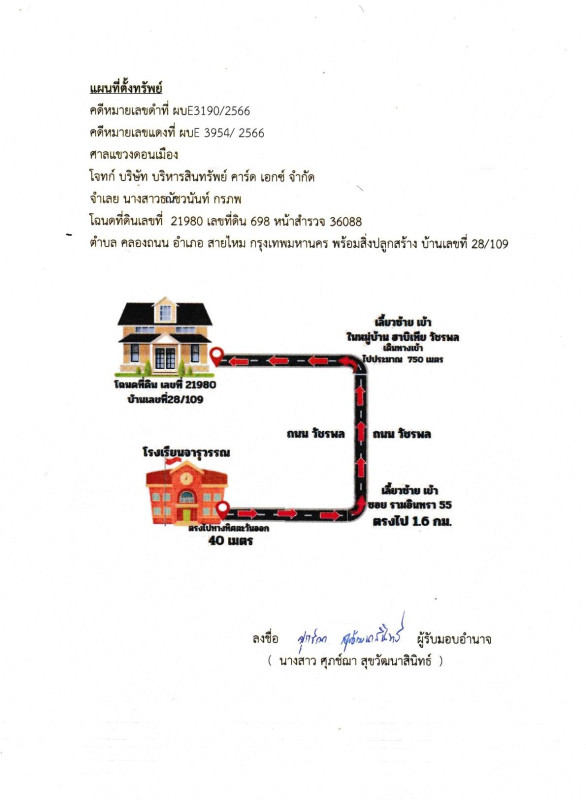 แผนที่ตั้งทรัพย์
คดีหมายเลขดำที่ ผบE3190/2566
คดีหมายเลขแดงที่ ผบE 3954/ 2566
ศาลแขวงดอนเมือง
โจทก์ บริษัท บริหารสินทรัพย์ คาร์ด เอกซ์ จำกัด
จำเลย นางสาวธณัชวนันท์ กรภพ
โฉนดที่ดินเลขที่ 21980 เลขที่ดิน 698 หน้าสำรวจ 36088
ตำบล คลองถนน อำเภอ สายไหม กรุงเทพมหานคร พร้อมสิ่งปลูกสร้าง บ้านเลขที่ 28/109
เลี้ยวซ้าย เข้า
ในหมู่บ้าน ฮาบิเทีย วัชรพล
เดินทางเข้า
ไปประมาณ 750 เมตร
โฉนดที่ดิน เลขที่ 21980
บ้านเลขที่28/109
ถนน วัชรพล
ถนน วัชรพล
โรงเรียนจารุวรรณ
เลี้ยวซ้าย เข้า
ซอย รามอินทรา 55
ตรงไป 1.6 กม.
ตรงไปทางทิศตะวันออก
40 เมตร
ลงชื่อ ผู้รับมอบอำนาจ
( นางสาว ศุภช์ฌา สุขวัฒนาสินิทธ์ )